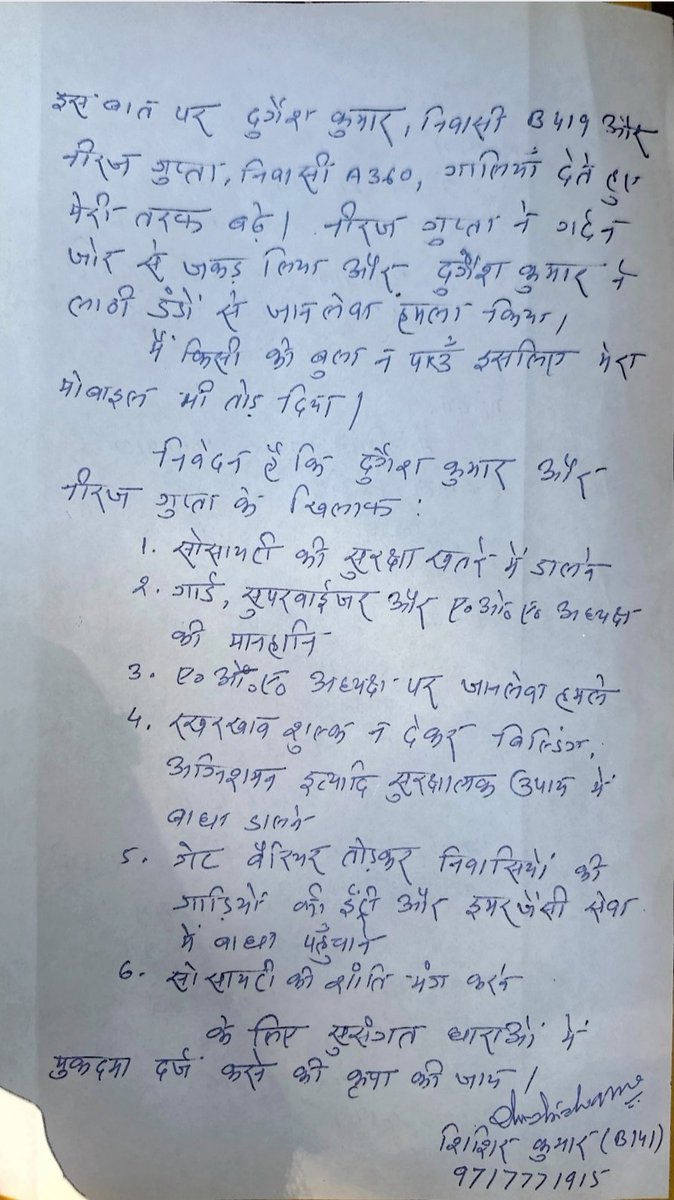 इस बात पर दुर्गेश कुमार, निवासी B419 और
नीरज गुप्ता, निवासी A360, गालियाँ देते हुए
मेरी तरफ बढ़े। नीरज गुप्ता ने गर्दन
जोर से जकड़ लिया और दुर्गेश कुमार ने
लाठी डंडों से जानलेवा हमला किया।
मैं किसी को बुला न पाऊँ इसलिए मेरा
मोबाइल भी तोड़ दिया।
निवेदन है कि दुर्गेश कुमार और
नीरज गुप्ता के खिलाफ :
1. सोसायटी की सुरक्षा खतरे में डालने
2. गार्ड, सुपरवाईजर और ए०ओ०ए० अध्यक्ष
की मानहानि
3. ए०ओ०ए० अध्यक्ष पर जानलेवा हमले
4. रखरखाव शुल्क न देकर बिल्डिंग,
अग्निशमन इत्यादि सुरक्षात्मक उपाय में
बाधा डालने
5. गेट बैरियर तोड़कर निवासियों की
गाड़ियों की ईंट्री और इमरजेंसी सेवा
में बाधा पहुँचाने
6. सोसायटी की शांति भंग करने
के लिए सुसंगत धाराओं में
मुकदमा दर्ज करने की कृपा की जाय।
शिशिर कुमार (B141)
9717771915